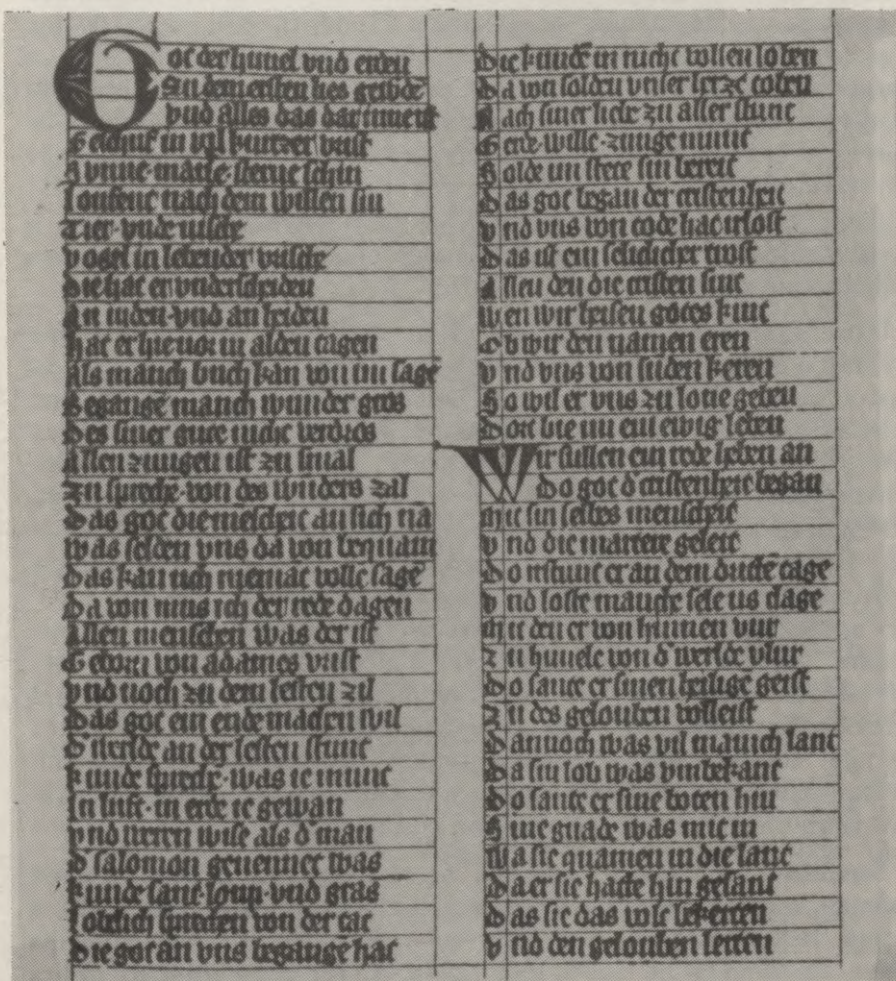 Got der himel vnd erden
An dem ersten hies gewerdē
vnd alles das dar inne ist
Geschuf in vil kurtzer vrist
Svnne · mane · sterne schin
loufent nach dem willen sin
Tier · vnde
vogel in lebender vrische
die hat er vnderscheiden
An iuden · vnd an heiden
hat er hie vor in alden tagen
Als manich buch kan von im sagē
Begangē manich wunder gros
Des siner gute nicht verdros
Allen zungen ist zu smal
Zu sprechē · von des wnders zal
Das got die mescheit an sich nā
was selden vns da von bequam
Das kan uch niemāt volle sagē
Da von mus ich der rede dagen
Allen menschen was der ist
Geborn von adames vrist
vnd noch zu dem lesten zil
Das got ein ende machen wil
D' werlde an der lesten stunt
kunde sprechē · was ie munt
In luft · in erde ie gewan
vnd weren wise als d' man
D' salomon genennet was
kunde sant · loup · vnd gras
lobelich sprechen von der tat
Die got an vns begangē hat
Die kundē in nicht vollen loben
Da von solden vnser hertze toben
Nach siner liebe zu aller stunt
Gerē · wille · zunge munt
Solde im stete sin bereit
Das got began der cristenheit
vnd vns von tode hat irlost
Das ist ein selicher trost
Allen den die cristen sint
Wen wir heisen gotes kint
Ob wir den namen eren
vnd vns von sunden keren
So wil er vns zu lone geben
Dort bie im ein ewig leben
Wir sullen ein rede heben an
Do got d' cristenheit began
Mit sin selbes menscheit
vnd die martere geleit
Do irstunt er an dem drittē tage
vnd loste manche sele us clage
Mit den er von hinnen vur
Zu himele von d' werlde vlur
Do sante er sinen heiligē geist
Zu des gelouben volleist
Dannoch was vil manich lant
Da sin lob was vmbekant
Do sante er sine boten hin
Sine gnade was mit in
Wa sie quamen in die lant
Da er sie hatte hin gesant
Das sie das volc bekerten
vnd den gelouben lerten